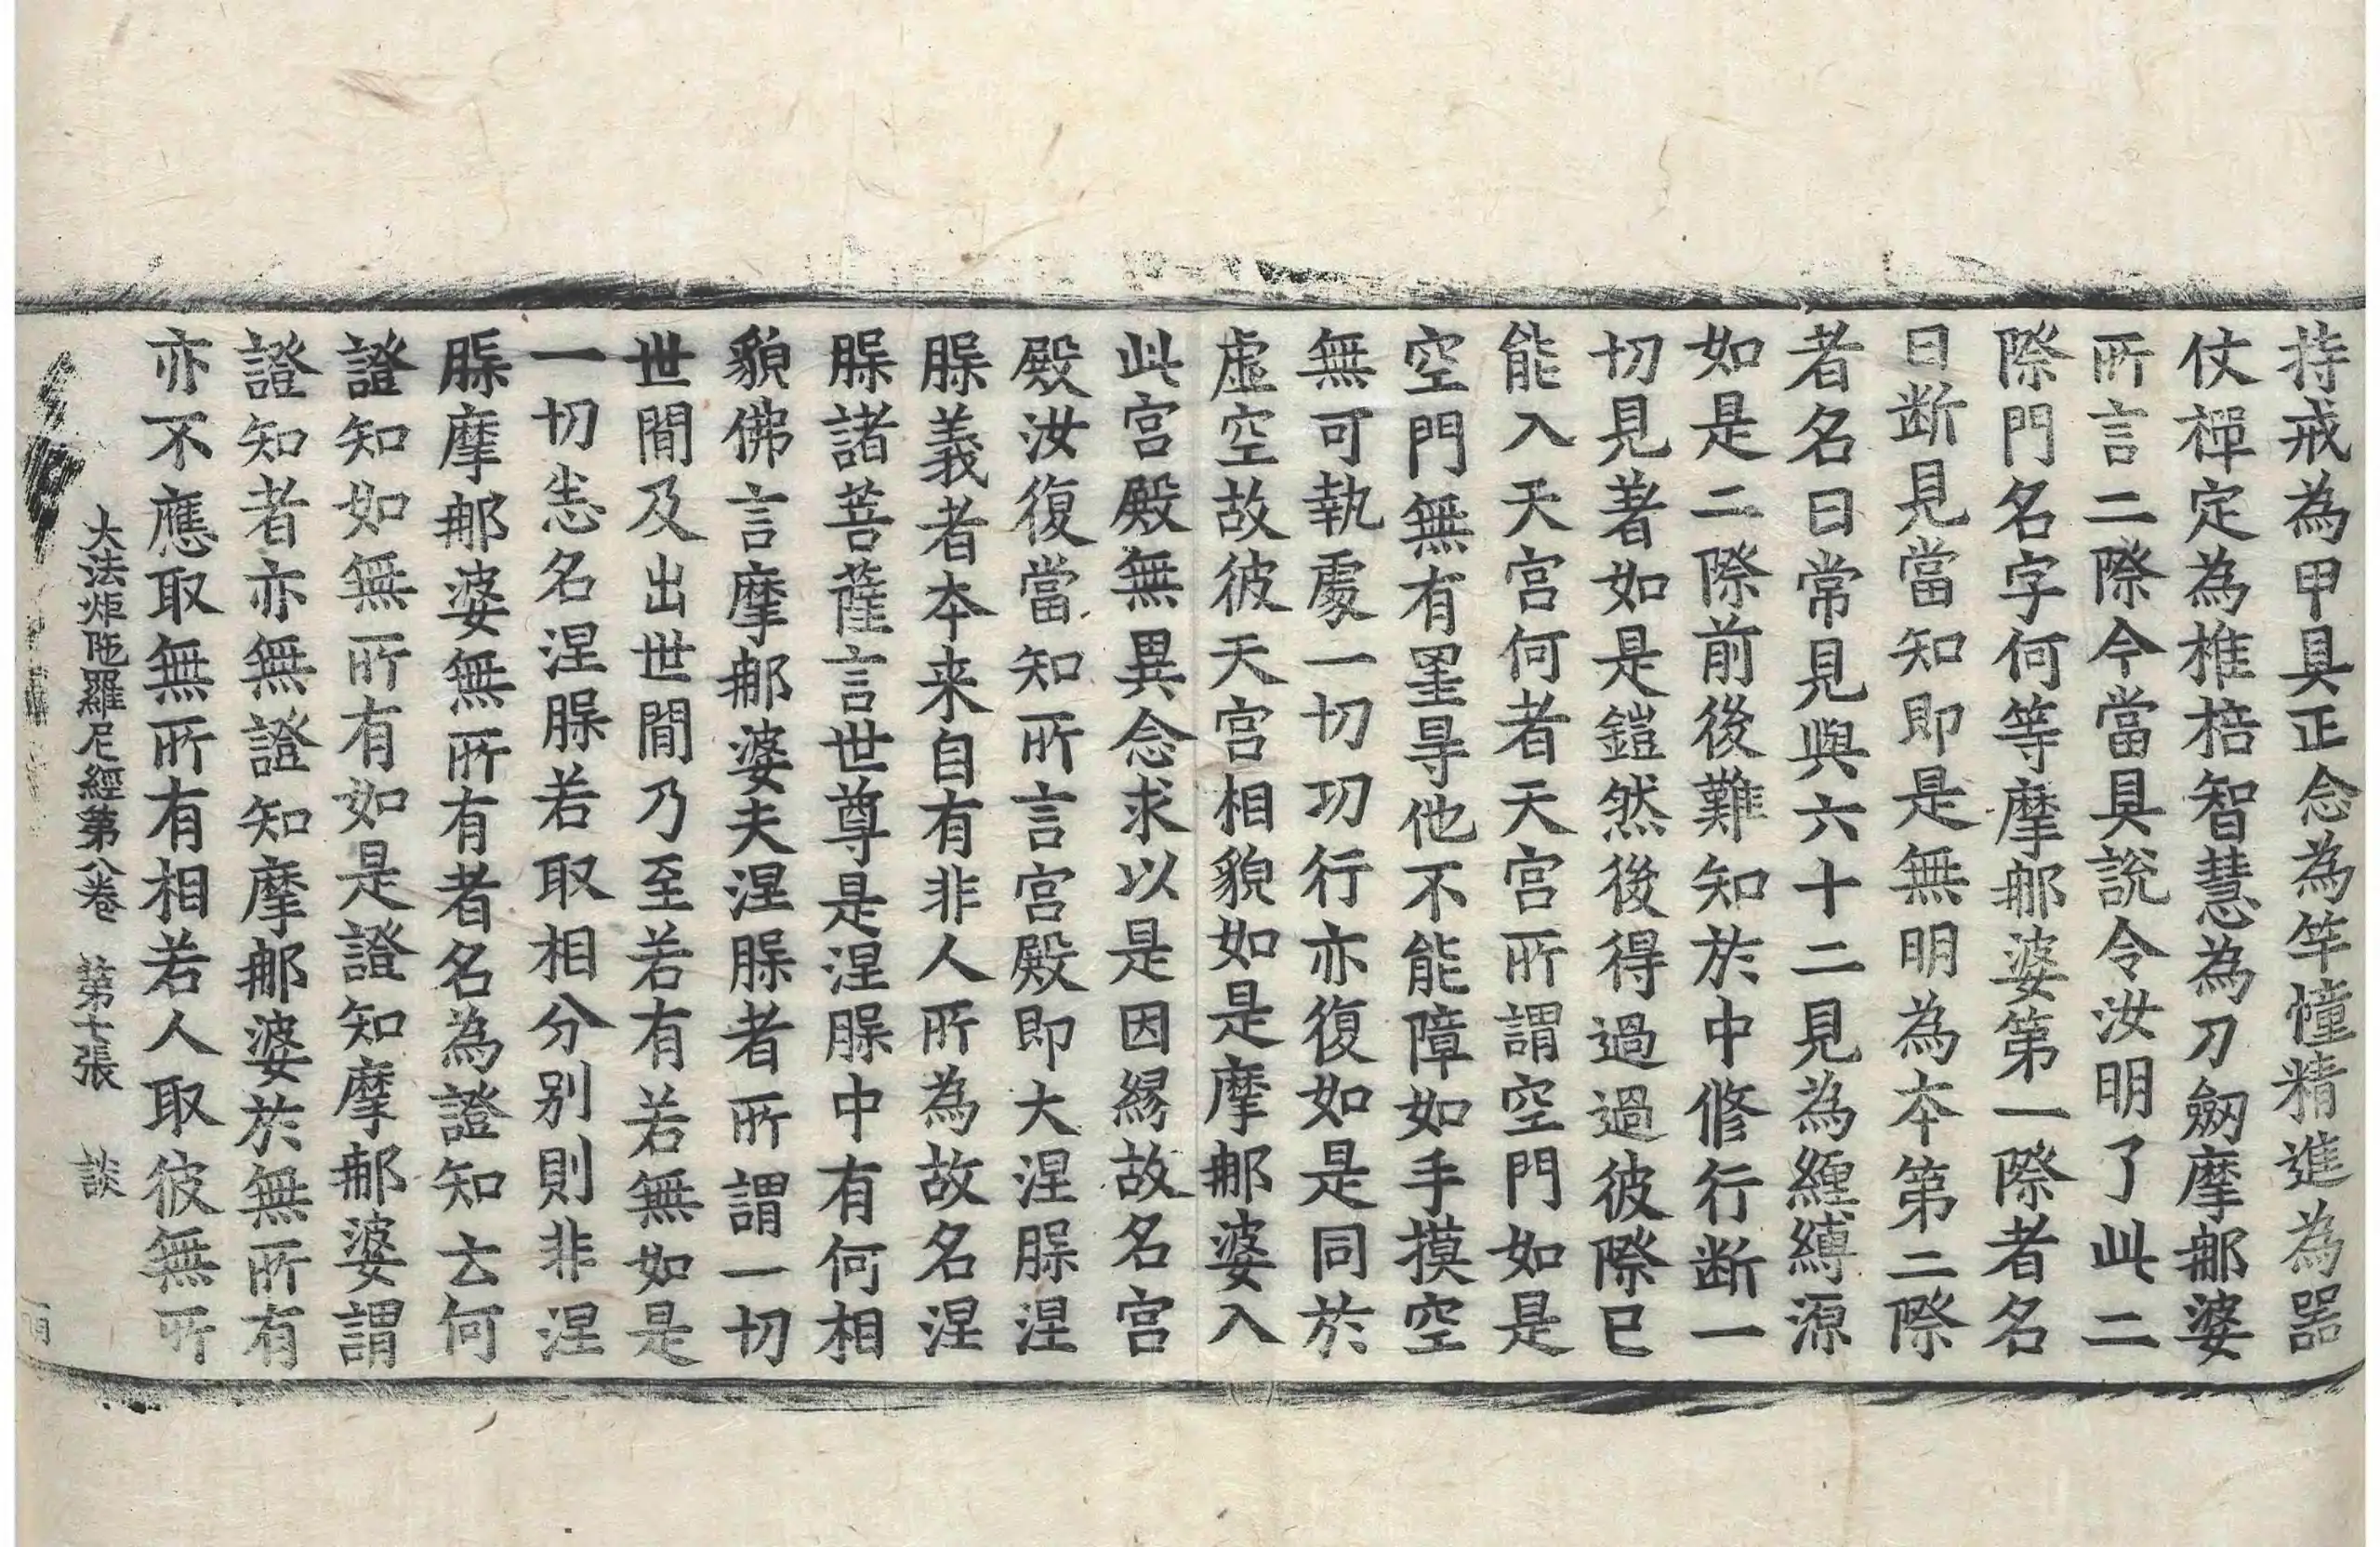 持戒為甲具正念為竿幢精進為器
仗禪定為椎棓智慧為刀劒摩那婆
所言二際今當具說令汝明了此二
際門名字何等摩那婆第一際者名
曰断見當知即是無明為本第二際
者名曰常見與六十二見為纏縛源
如是二際前後難知於中修行断一
切見著如是鎧然後得過過彼際已
能入天宮何者天宮所謂空門如是
空門無有罣㝵他不能障如手摸空
無可執處一切功行亦復如是同於
虛空故彼天宮相貌如是摩那婆入
此宮殿無異念求以是因緣故名宮
殿汝復當知所言宮殿即大涅槃涅
槃義者本来自有非人所為故名涅
槃諸菩薩言世尊是涅槃中有何相
貌佛言摩那婆夫涅槃者所謂一切
世間及出世間乃至若有若無如是
一切悉名涅槃若取相分别則非涅
槃摩那婆無所有者名為證知云何
證知如無所有如是證知摩那婆謂
證知者亦無證知摩那婆於無所有
亦不應取無所有相若人取彼無所
大法炬陁羅尼經第八卷 第七張 談